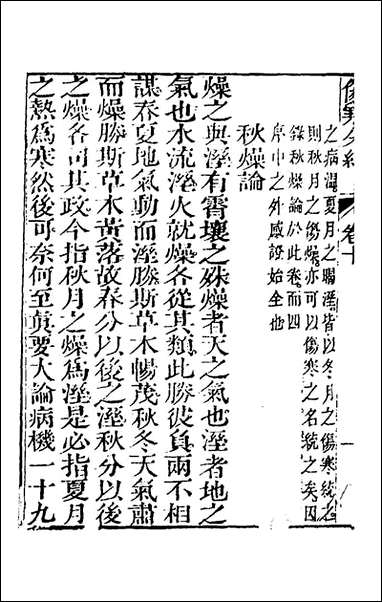 卷十
一
之病溫夏月之暍溼皆以冬月之傷寒統之
則秋月之傷燥亦可以傷寒之名統之矣因
錄秋燥論於此卷而四
序中之外感證始全也
秋燥論
燥之與溼有霄壤之殊燥者天之氣也溼者地之
氣也水流溼火就燥各從其類此勝彼負兩不相
謀春夏地氣動而溼勝斯草木暢茂秋冬天氣肅
而燥勝斯草木黃落故春分以後之溼秋分以後
之燥各司其政今指秋月之燥爲溼是必指夏月
之熱爲寒然後可奈何至眞要大論病機一十九